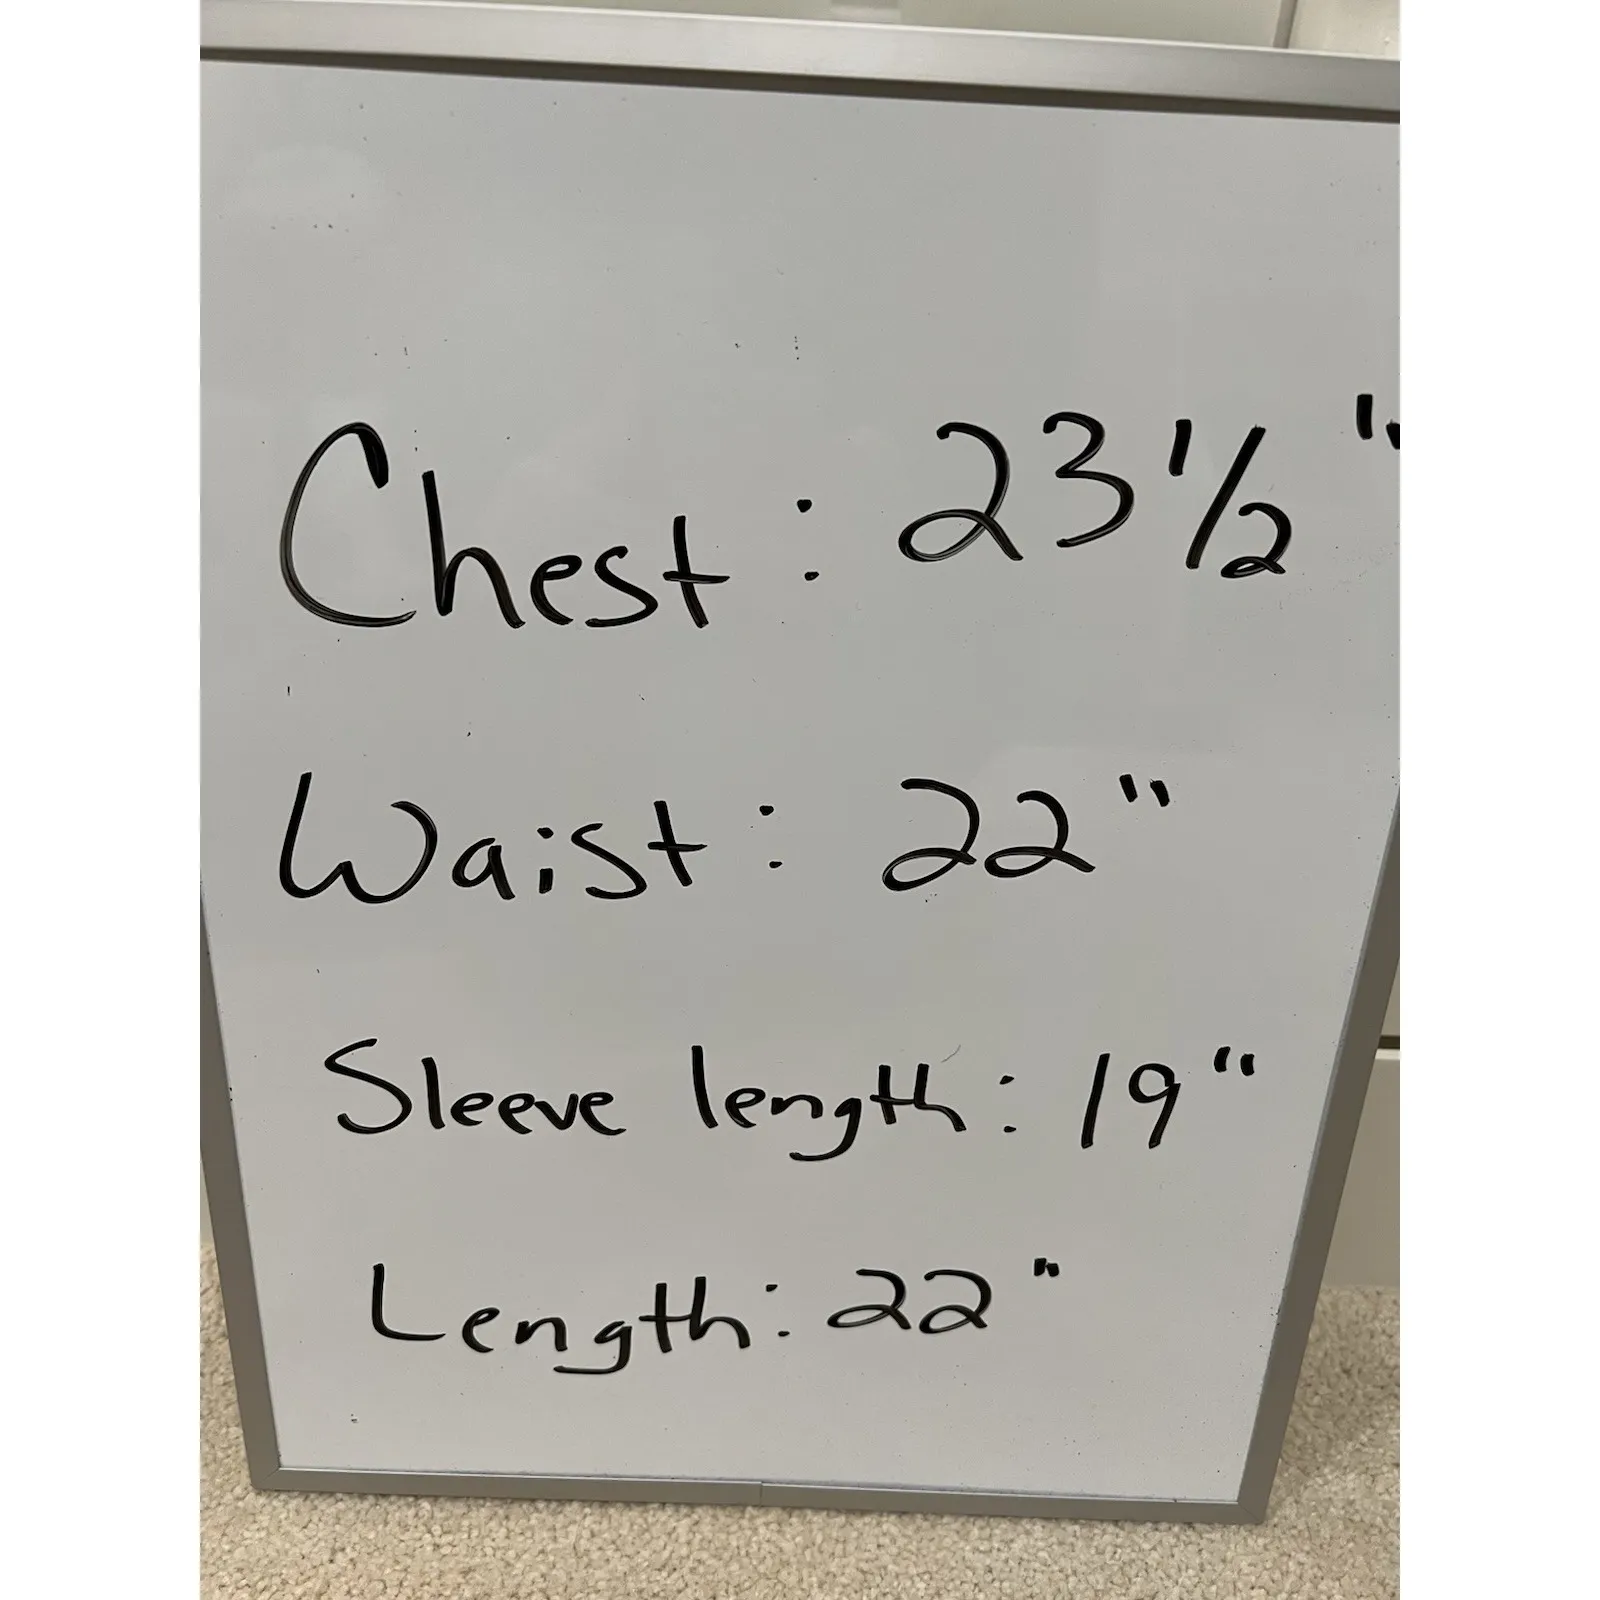 Chest: 23 1/2"
Waist: 22"
Sleeve length: 19"
Length: 22"